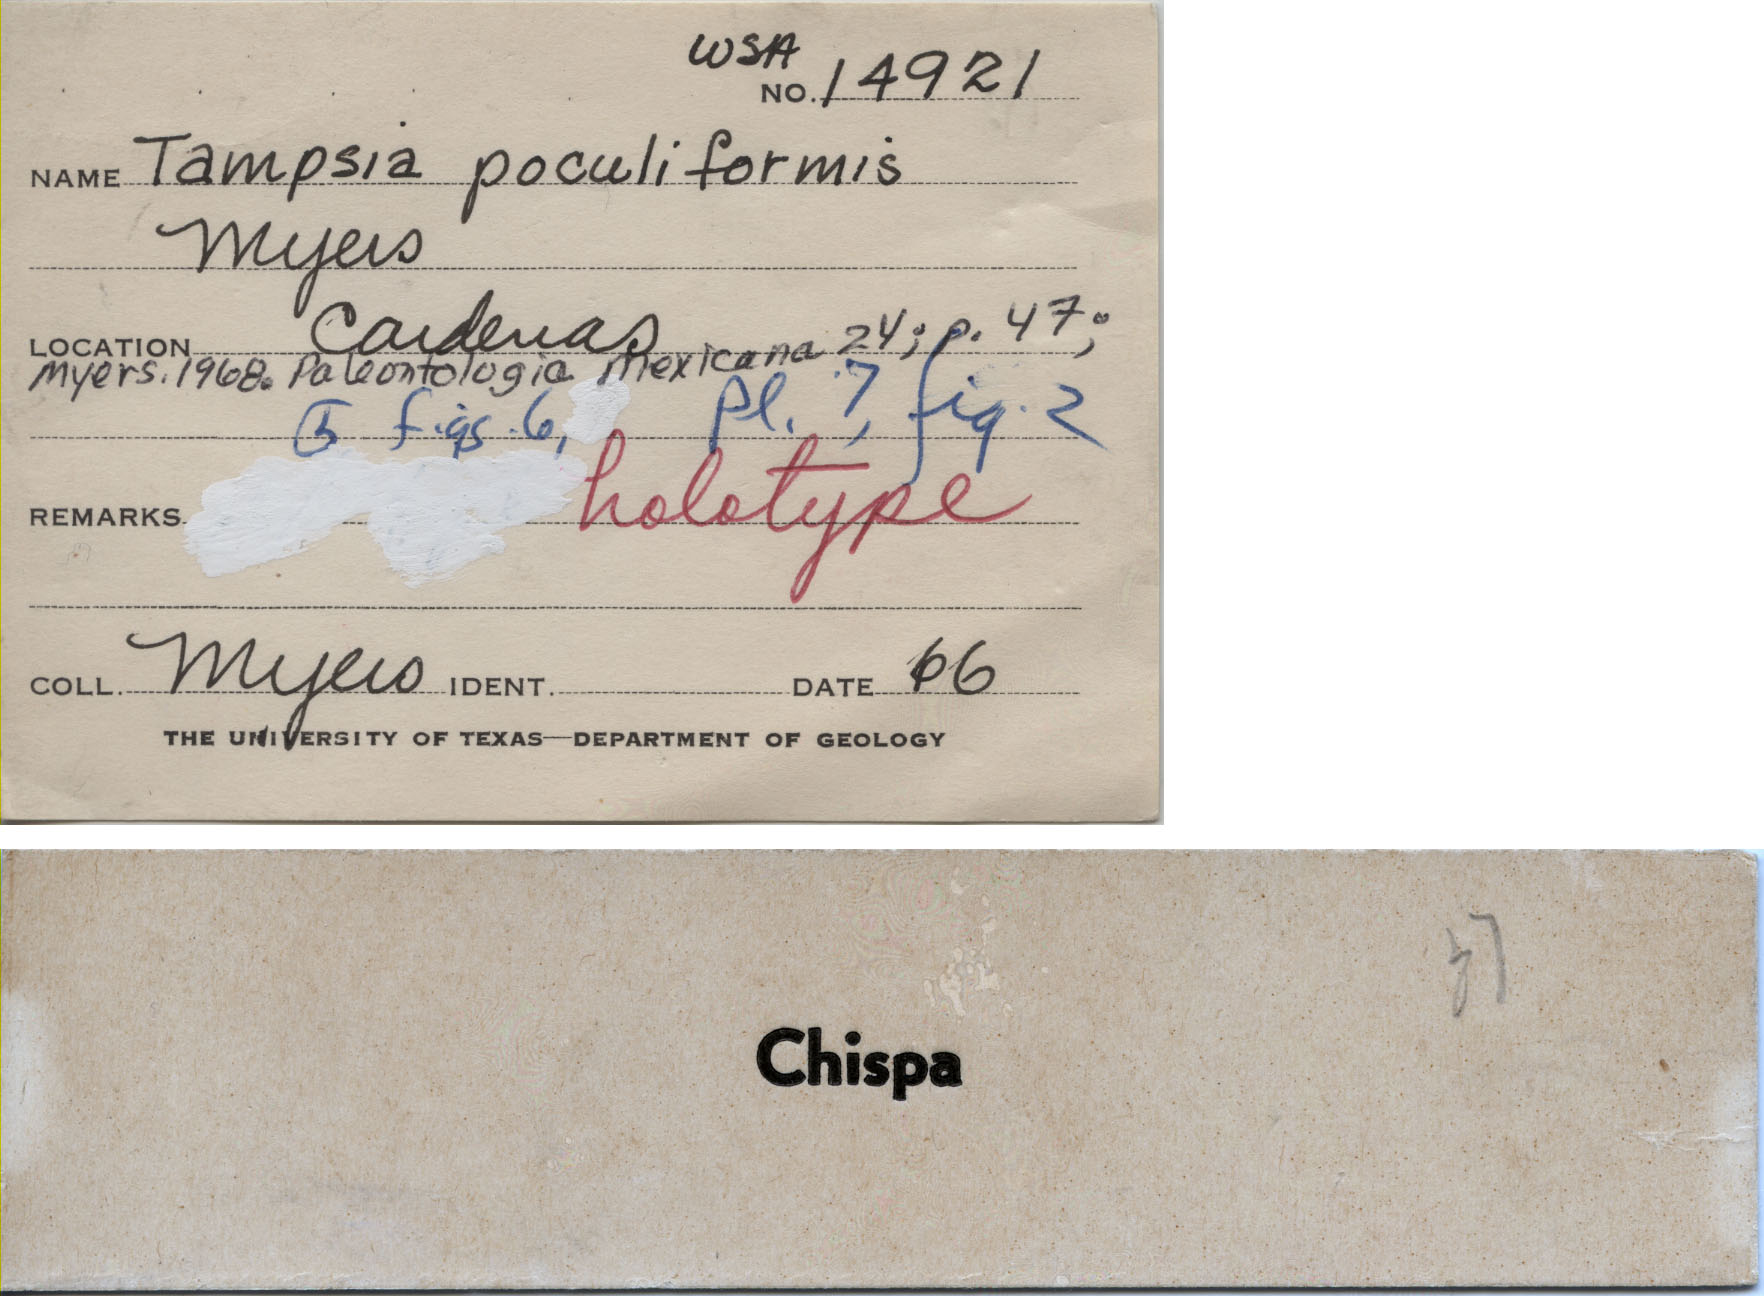 WSA
NO. 14921
NAME Tampsia poculiformis
Myers
LOCATION Cardenas
Myers. 1968. Paleontologia Mexicana 24; p. 47;
figs. 6, pl. 7, fig. 2
REMARKS holotype
COLL. Myers IDENT. DATE 66
THE UNIVERSITY OF TEXAS—DEPARTMENT OF GEOLOGY
Chispa